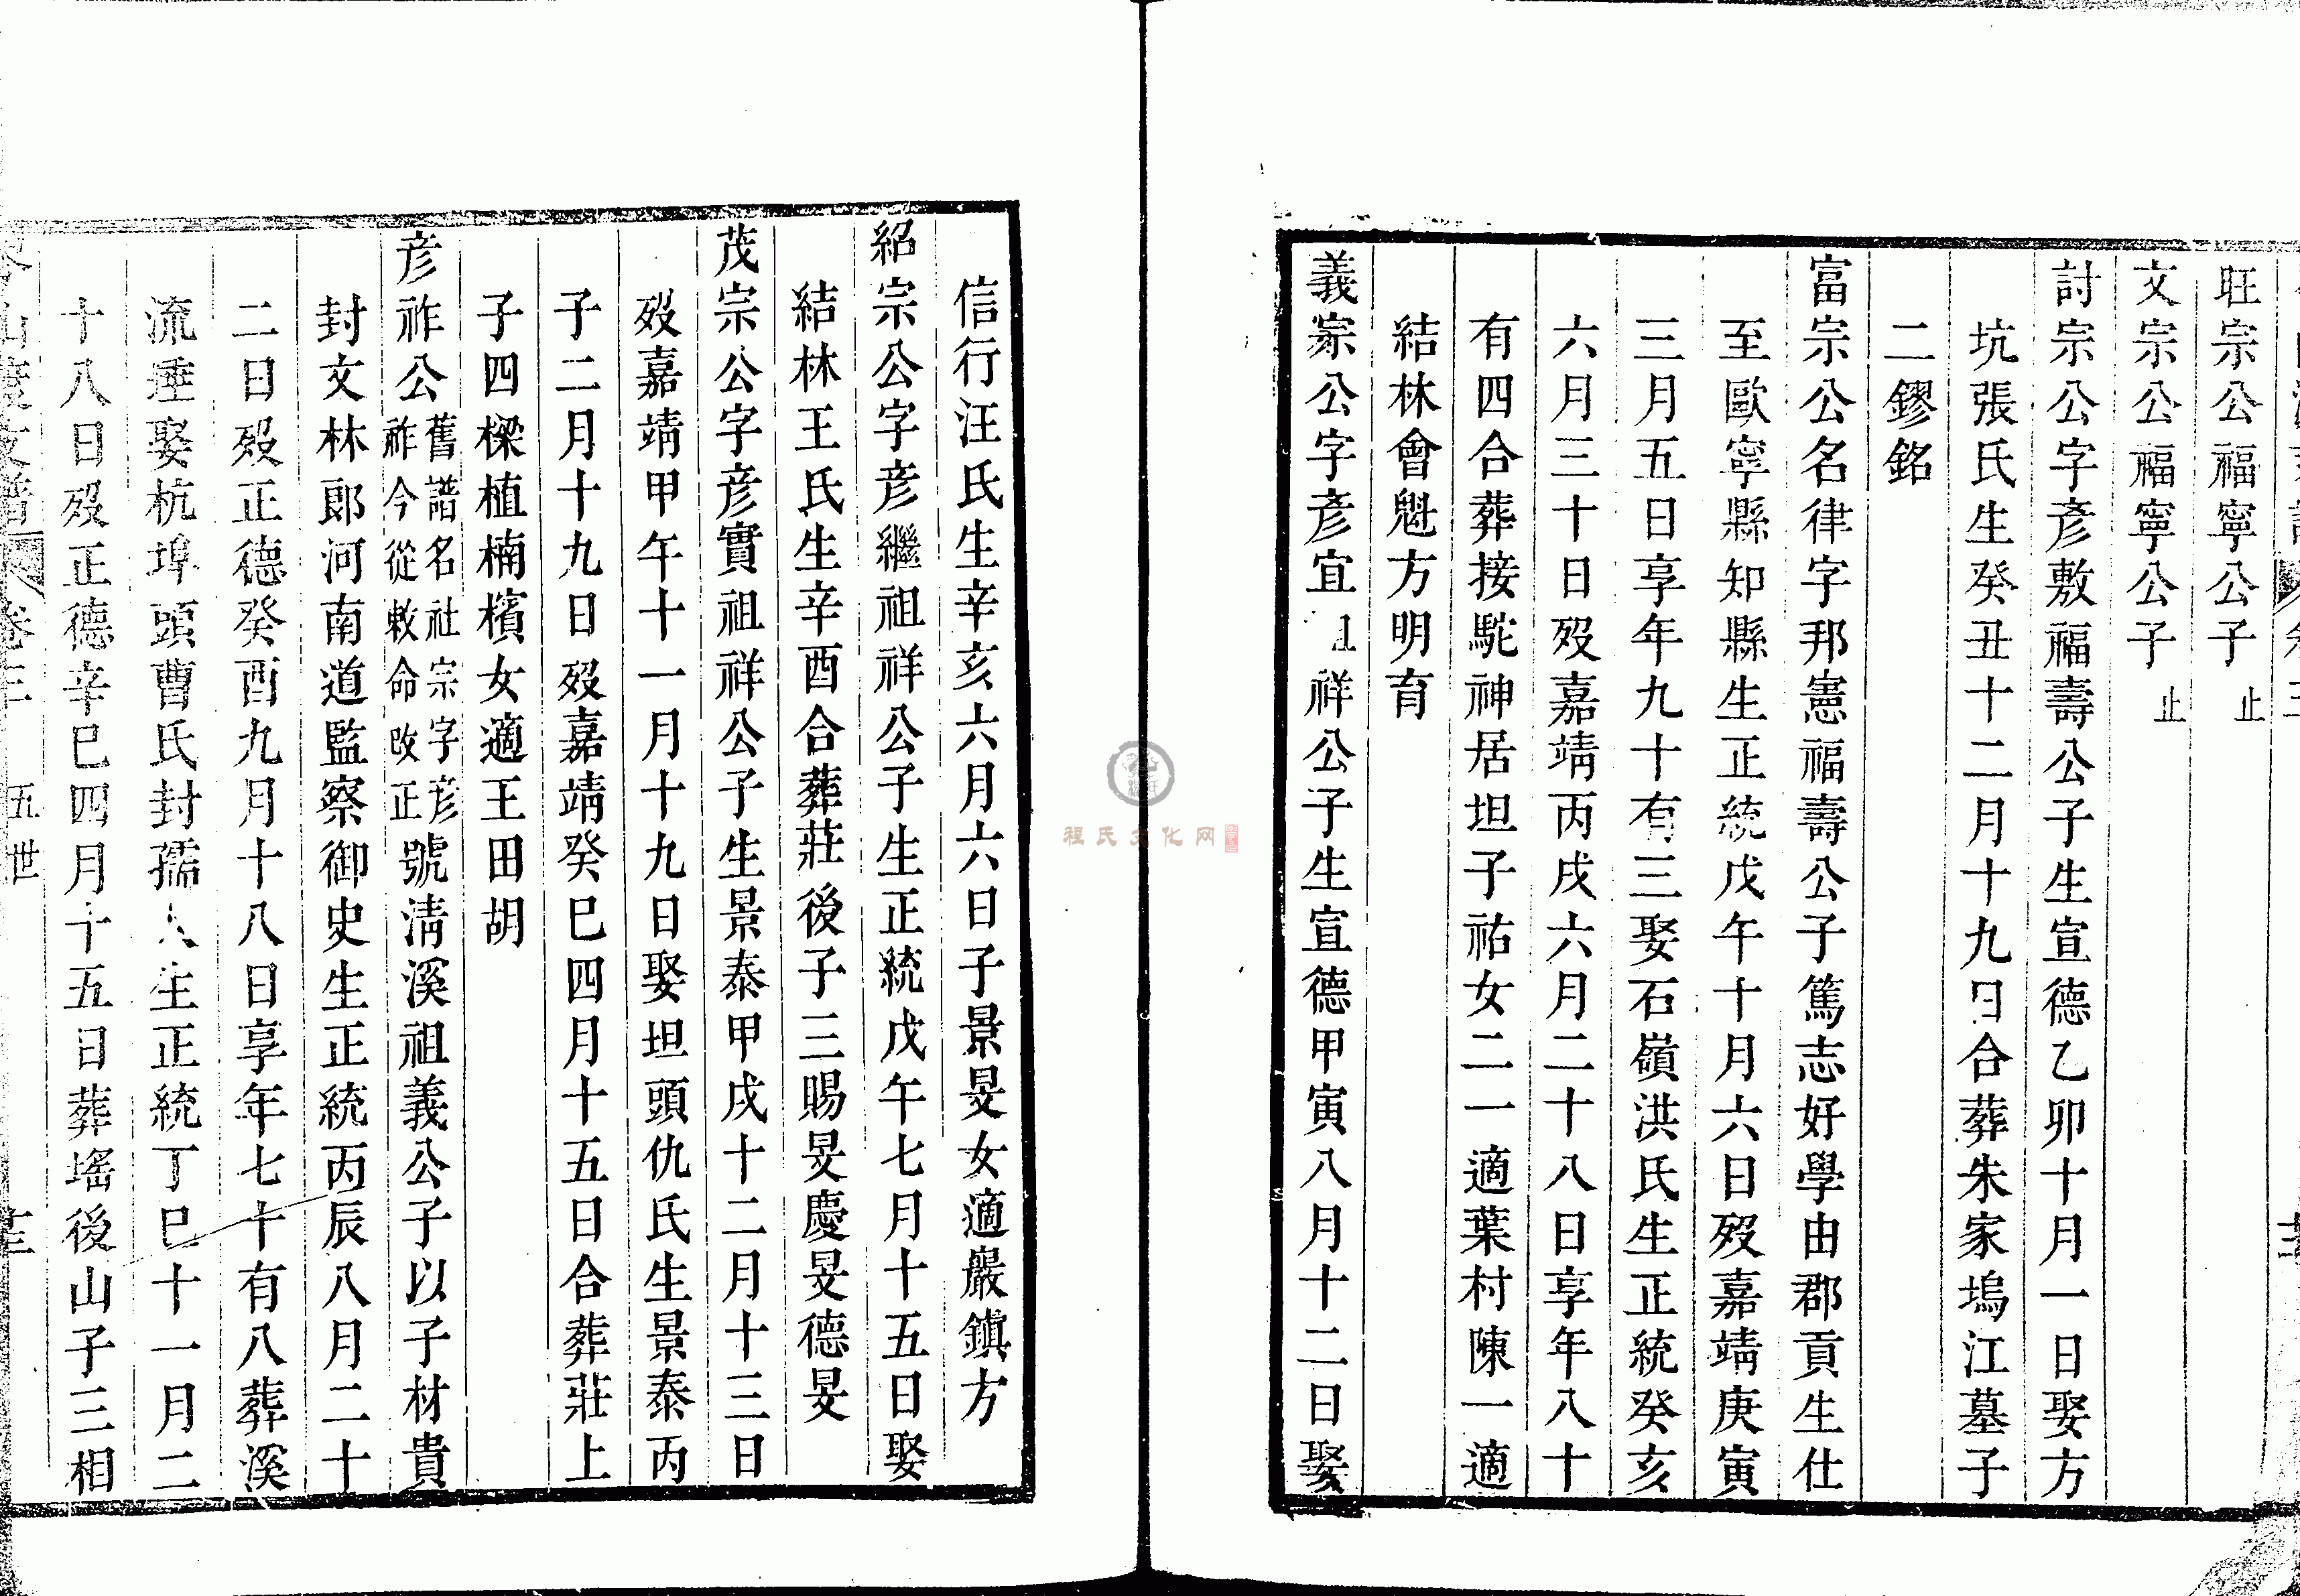 旺宗公福寧公子止
文宗公福寧公子止
討宗公字彥敷福壽公子生宣德乙卯十月一日娶方
坑張氏生癸丑十二月十九日合葬朱家塢江墓子
二鏐銘
富宗公名律字邦憲福壽公子篤志好學由郡貢生仕
至歐寧縣知縣生正統戊午十月六日歿嘉靖庚寅
三月五日享年九十有三娶石嶺洪氏生正統癸亥
六月三十日歿嘉靖丙戌六月二十八日享年八十
有四合葬接駝神居坦子祐女二一適葉村陳一適
結林會魁方明育
義宗公字彥宜祥公子生宣德甲寅八月十二日娶
信行汪氏生辛亥六月六日子景旻女適嚴鎮方
紹宗公字彥繼祖祥公子生正統戊午七月十五日娶
結林王氏生辛酉合葬莊後子三賜旻慶旻德旻
茂宗公字彥實祖祥公子生景泰甲戌十二月十三日
歿嘉靖甲午十一月十九日娶坦頭仇氏生景泰丙
子二月十九日歿嘉靖癸巳四月十五日合葬莊上
子四樑植楠檳女適王田胡
彥祚公舊譜名社宗字彥祚今從敕命改正號清溪祖義公子以子材貴
封文林郎河南道監察御史生正統丙辰八月二十
二日歿正德癸酉九月十八日享年七十有八葬溪
流埀娶杭埠頭曹氏封孺人生正統丁巳十一月二
十八日歿正德辛巳四月十五日葬塔後山子三相
卷三 五世
程氏文化网